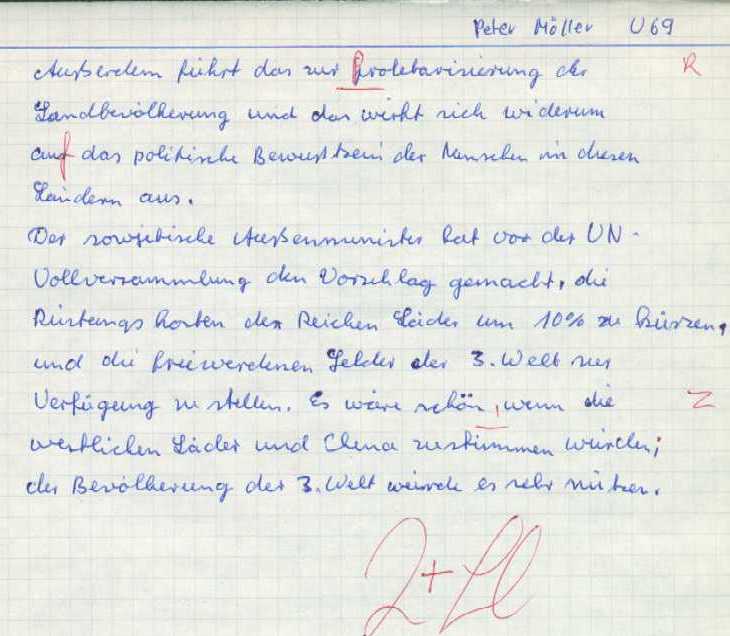 Peter Möller U69
Außerdem führt das zur Proletarisierung der R
Landbevölkerung und das wirkt sich widerum
auf das politische Bewustsein der Menschen in diesen
Ländern aus.
Der sowjetische Außenminister hat vor der UN-
Vollversammlung den Vorschlag gemacht, die
Rüstungskosten der Reichen Läder um 10% zu kürzen,
und die freiwerdenen Gelder der 3. Welt zur
Verfügung zu stellen. Es wäre schön, wenn die Z
westlichen Läder und China zustimmen würden;
der Bevölkerung der 3. Welt würde es sehr nützen.
2+